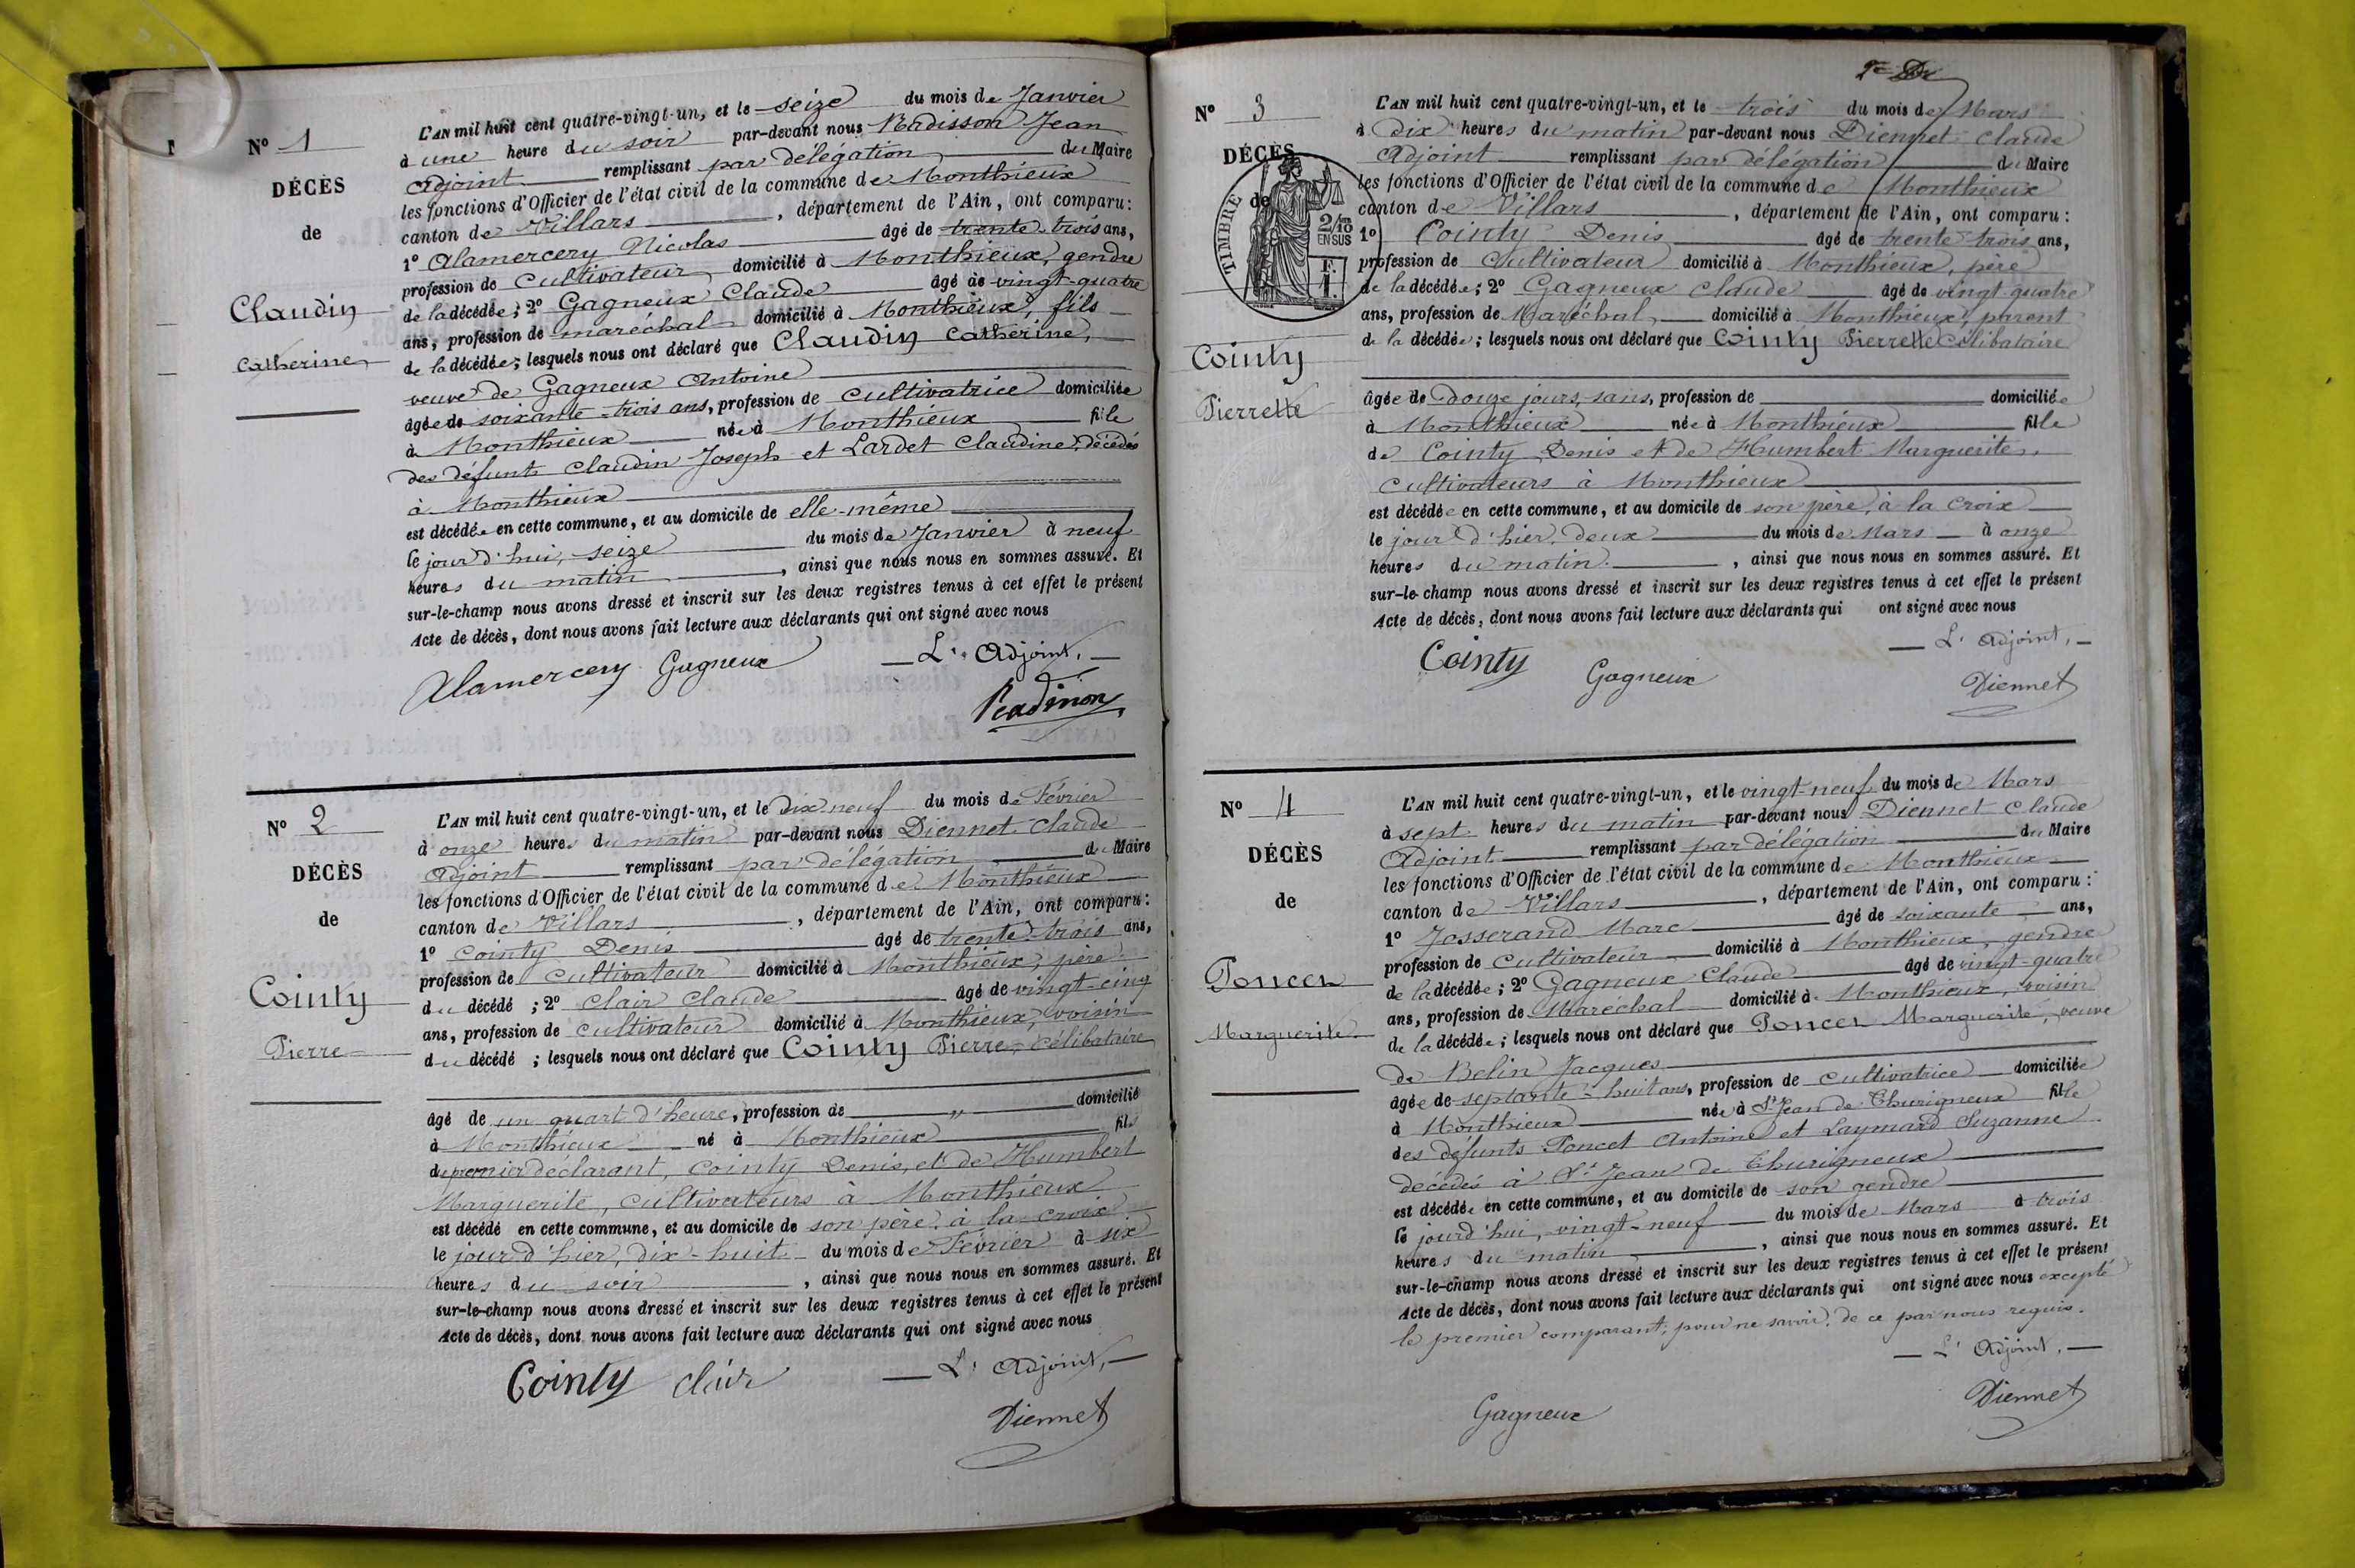 N° 1
DÉCÈS
de
Claudin
Catherine
L'AN mil huit cent quatre-vingt-un, et le seize du mois de Janvier
à une heure du soir par-devant nous Radisson Jean
Adjoint remplissant par délégation du Maire
les fonctions d'Officier de l'état civil de la commune de Monthieux
canton de Villars, département de l'Ain, ont comparu:
1° Alamercery Nicolas âgé de trente-trois ans,
profession de Cultivateur domicilié à Monthieux, gendre
de la décédée; 2° Gagneux Claude âgé de vingt-quatre
ans, profession de maréchal domicilié à Monthieux, fils
de la décédée; lesquels nous ont déclaré que Claudin Catherine,
veuve de Gagneux Antoine
âgée de soixante-trois ans, profession de cultivatrice domiciliée
à Monthieux née à Monthieux fille
des défunts Claudin Joseph et Lardet Claudine, décédés
à Monthieux
est décédée en cette commune, et au domicile de elle-même
le jourd'hui, seize du mois de Janvier à neuf
heures du matin, ainsi que nous nous en sommes assuré. Et
sur-le-champ nous avons dressé et inscrit sur les deux registres tenus à cet effet le présent
Acte de décès, dont nous avons fait lecture aux déclarants qui ont signé avec nous
Alamercery Gagneux — L'Adjoint, —
Radisson
N° 2
DÉCÈS
de
Cointy
Pierre
L'AN mil huit cent quatre-vingt-un, et le dix neuf du mois de Février
à onze heures du matin par-devant nous Diennet Claude
Adjoint remplissant par délégation du Maire
les fonctions d'Officier de l'état civil de la commune de Monthieux
canton de Villars, département de l'Ain, ont comparu:
1° Cointy Denis âgé de trente-trois ans,
profession de cultivateur domicilié à Monthieux, père
du décédé; 2° Clair Claude âgé de vingt-cinq
ans, profession de cultivateur domicilié à Monthieux, voisin
du décédé; lesquels nous ont déclaré que Cointy Pierre, célibataire
âgé de un quart d'heure, profession de " domicilié
à Monthieux né à Monthieux fils
du premier déclarant, Cointy Denis, et de Humbert
Marguerite, cultivateurs à Monthieux
est décédé en cette commune, et au domicile de son père, à la croix
le jour d'hier, dix-huit du mois de Février à six
heures du soir, ainsi que nous nous en sommes assuré. Et
sur-le-champ nous avons dressé et inscrit sur les deux registres tenus à cet effet le présent
Acte de décès, dont nous avons fait lecture aux déclarants qui ont signé avec nous
Cointy Clair — L'Adjoint, —
Diennet
N° 3
DÉCÈS
de
TIMBRE
2/10
EN SUS
F.
1
Cointy
Pierrette
L'AN mil huit cent quatre-vingt-un, et le trois du mois de Mars
à dix heures du matin par-devant nous Diennet Claude
Adjoint remplissant par délégation du Maire
les fonctions d'Officier de l'état civil de la commune de Monthieux
canton de Villars, département de l'Ain, ont comparu:
1° Cointy Denis âgé de trente trois ans,
profession de Cultivateur domicilié à Monthieux, père
de la décédée; 2° Gagneux Claude âgé de vingt-quatre
ans, profession de Maréchal domicilié à Monthieux, parent
de la décédée; lesquels nous ont déclaré que Cointy Pierrette Célibataire
âgée de Douze jours, sans, profession de domiciliée
à Monthieux née à Monthieux fille
de Cointy Denis et de Humbert Marguerite,
cultivateurs à Monthieux
est décédée en cette commune, et au domicile de son père, à la croix
le jour d'hier, deux du mois de Mars à onze
heures du matin, ainsi que nous nous en sommes assuré. Et
sur-le-champ nous avons dressé et inscrit sur les deux registres tenus à cet effet le présent
Acte de décès, dont nous avons fait lecture aux déclarants qui ont signé avec nous
— L'Adjoint, —
Cointy Gagneux Diennet
N° 4
DÉCÈS
de
Poncet
Marguerite
L'AN mil huit cent quatre-vingt-un, et le vingt-neuf du mois de Mars
à sept heures du matin par-devant nous Diennet Claude
Adjoint remplissant par délégation du Maire
les fonctions d'Officier de l'état civil de la commune de Monthieux
canton de Villars, département de l'Ain, ont comparu:
1° Josserand Marc âgé de soixante ans,
profession de Cultivateur domicilié à Monthieux, gendre
de la décédée; 2° Gagneux Claude âgé de vingt-quatre
ans, profession de Maréchal domicilié à Monthieux, voisin
de la décédée; lesquels nous ont déclaré que Poncet Marguerite, veuve
de Belin Jacques
âgée de septante-huit ans, profession de cultivatrice domiciliée
à Monthieux née à St Jean de Thurigneux fille
des défunts Poncet Antoine et Laymard Suzanne
décédés à St Jean de Thurigneux
est décédée en cette commune, et au domicile de son gendre
le jourd'hui, vingt-neuf du mois de Mars à trois
heures du matin, ainsi que nous nous en sommes assuré. Et
sur-le-champ nous avons dressé et inscrit sur les deux registres tenus à cet effet le présent
Acte de décès, dont nous avons fait lecture aux déclarants qui ont signé avec nous excepté
le premier comparant, pour ne savoir, de ce par nous requis.
— L'Adjoint, —
Gagneux Diennet